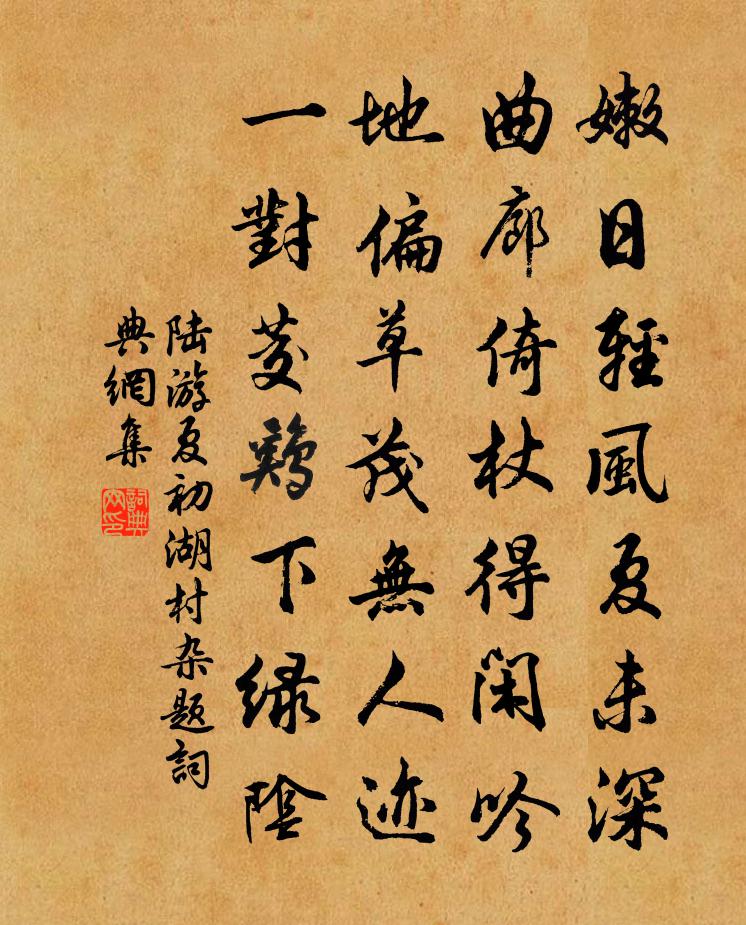 嫩日輕風夏未深
曲廊倚杖得閑吟
地偏草茂無人迹
一對茭鷄下綠陰
陆游夏初湖村杂题詞
典網集
詞典
网印